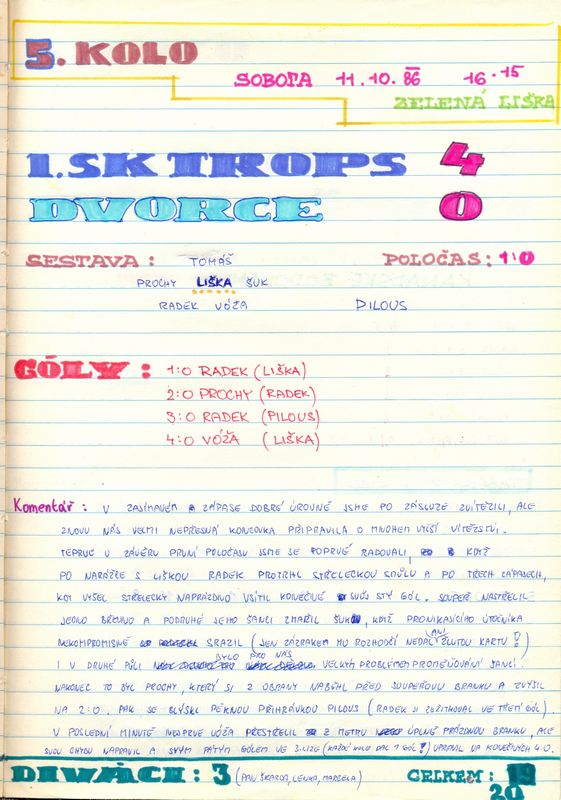 5. KOLO
SOBOTA 11.10.86 16.15
ZELENÁ LIŠKA
1. SK TROPS 4
DVORCE 0
SESTAVA: TOMÁŠ POLOČAS: 1:0
PROCHY LIŠKA ŠUK
RADEK VÓŽA PILOUS
GÓLY: 1:0 RADEK (LIŠKA)
2:0 PROCHY (RADEK)
3:0 RADEK (PILOUS)
4:0 VÓŽA (LIŠKA)
Komentář: V ZAJÍMAVÉM A ZÁPASE DOBRÉ ÚROVNĚ JSME PO ZÁSLUZE ZVÍTĚZILI, ALE
ZNOVU NÁS VELMI NEPŘESNÁ KONCOVKA PŘIPRAVILA O MNOHEM VYŠŠÍ VÍTĚZSTVÍ.
TEPRVE V ZÁVĚRU PRVNÍ POLOČASU JSME SE POPRVÉ RADOVALI, KDYŽ
PO NARÁŽCE S LIŠKOU RADEK PROTRHL STŘELECKOU SMŮLU A PO TŘECH ZÁPASECH,
KDY VYŠEL STŘELECKY NAPRÁZDNO VSÍTIL KONEČNĚ SVŮJ STÝ GÓL. SOUPEŘ NASTŘELIL
JEDNO BŘEVNO A PODRUHÉ JEHO ŠANCI ZMAŘIL ŠUK, KDYŽ PRONIKAJÍCÍHO ÚTOČNÍKA
NEKOMPROMISNĚ SRAZIL (JEN ZÁZRAKEM MU ROZHODČÍ NEDAL ANI ŽLUTOU KARTU!)
I V DRUHÉ PŮLI BYLO PRO NÁS VELKÝM PROBLÉMEM PROMĚŇOVÁNÍ ŠANCÍ.
NAKONEC TO BYL PROCHY, KTERÝ SI Z OBRANY NABĚHL PŘED SOUPEŘOVU BRANKU A ZVÝŠIL
NA 2:0. PAK SE BLÝSKL PĚKNOU PŘIHRÁVKOU PILOUS (RADEK JI ZUŽITKOVAL VE TŘETÍ GÓL).
V POSLEDNÍ MINUTĚ NEJPRVE VÓŽA PŘESTŘELIL Z METRU ÚPLNĚ PRÁZDNOU BRANKU, ALE
SVOU CHYBU NAPRAVIL A SVÝM PÁTÝM GÓLEM VE 3. LIZE (KAŽDÉ KOLO DAL 1 GÓL!) UPRAVIL NA KONEČNÝCH 4:0.
DIVÁCI: 3 (PAN ŠKARDA, LENKA, MARCELA) CELKEM: 19
20